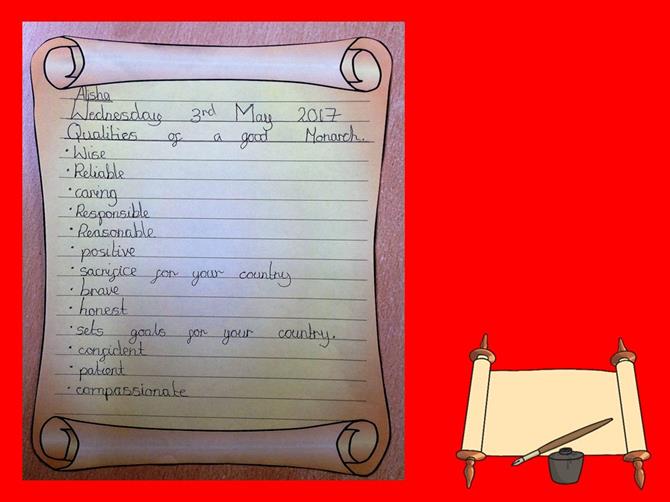 Alisha
Wednesday 3rd May 2017
Qualities of a good Monarch.
· Wise
· Reliable
· caring
· Responsible
· Reasonable
· positive
· sacrifice for your country
· brave
· honest
· sets goals for your country.
· confident
· patient
· compassionate